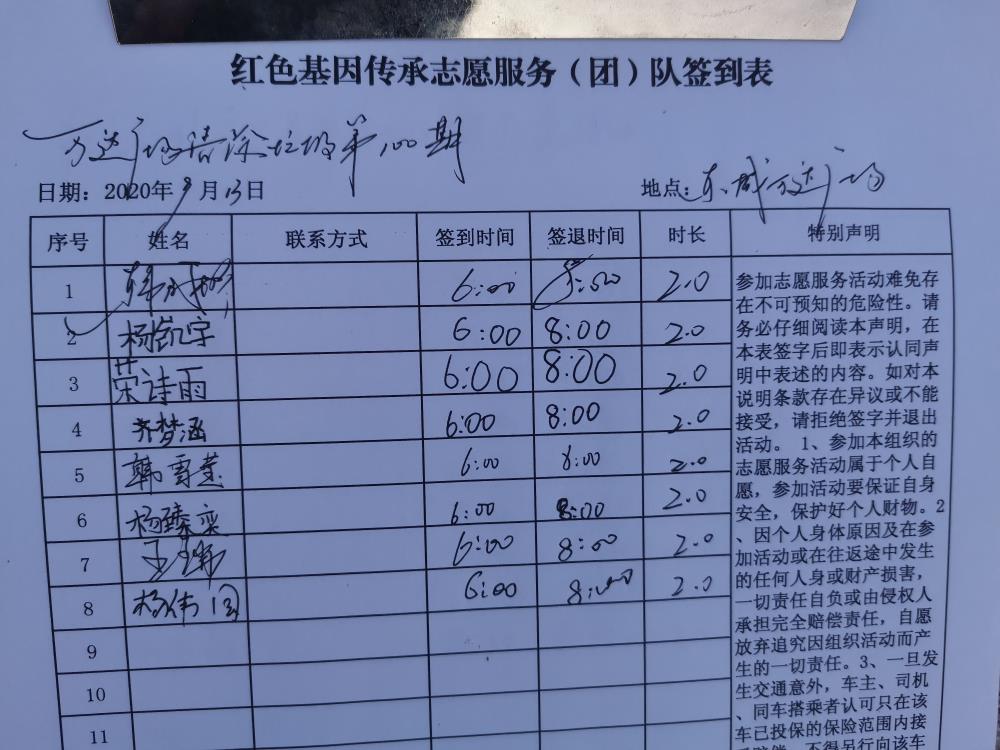 红色基因传承志愿服务（团）队签到表
万达广场清除垃圾第100期
日期：2020年9月13日
地点：东城万达广场
序号 姓名 联系方式 签到时间 签退时间 时长 特别声明
1 6:00 8:00 2.0
2 杨凯宇 6:00 8:00 2.0
3 荣诗雨 6:00 8:00 2.0
4 齐梦涵 6:00 8:00 2.0
5 韩雪莹 6:00 8:00 2.0
6 杨臻奕 6:00 8:00 2.0
7 6:00 8:00 2.0
8 杨伟国 6:00 8:00 2.0
9
10
11
参加志愿服务活动难免存
在不可预知的危险性。请
务必仔细阅读本声明，在
本表签字后即表示认同声
明中表述的内容。如对本
说明条款存在异议或不能
接受，请拒绝签字并退出
活动。 1、参加本组织的
志愿服务活动属于个人自
愿，参加活动要保证自身
安全，保护好个人财物。2
、因个人身体原因及在参
加活动或在往返途中发生
的任何人身或财产损害，
一切责任自负或由侵权人
承担完全赔偿责任，自愿
放弃追究因组织活动而产
生的一切责任。3、一旦发
生交通意外，车主、司机
、同车搭乘者认可只在该
车已投保的保险范围内接
不得另行向该车